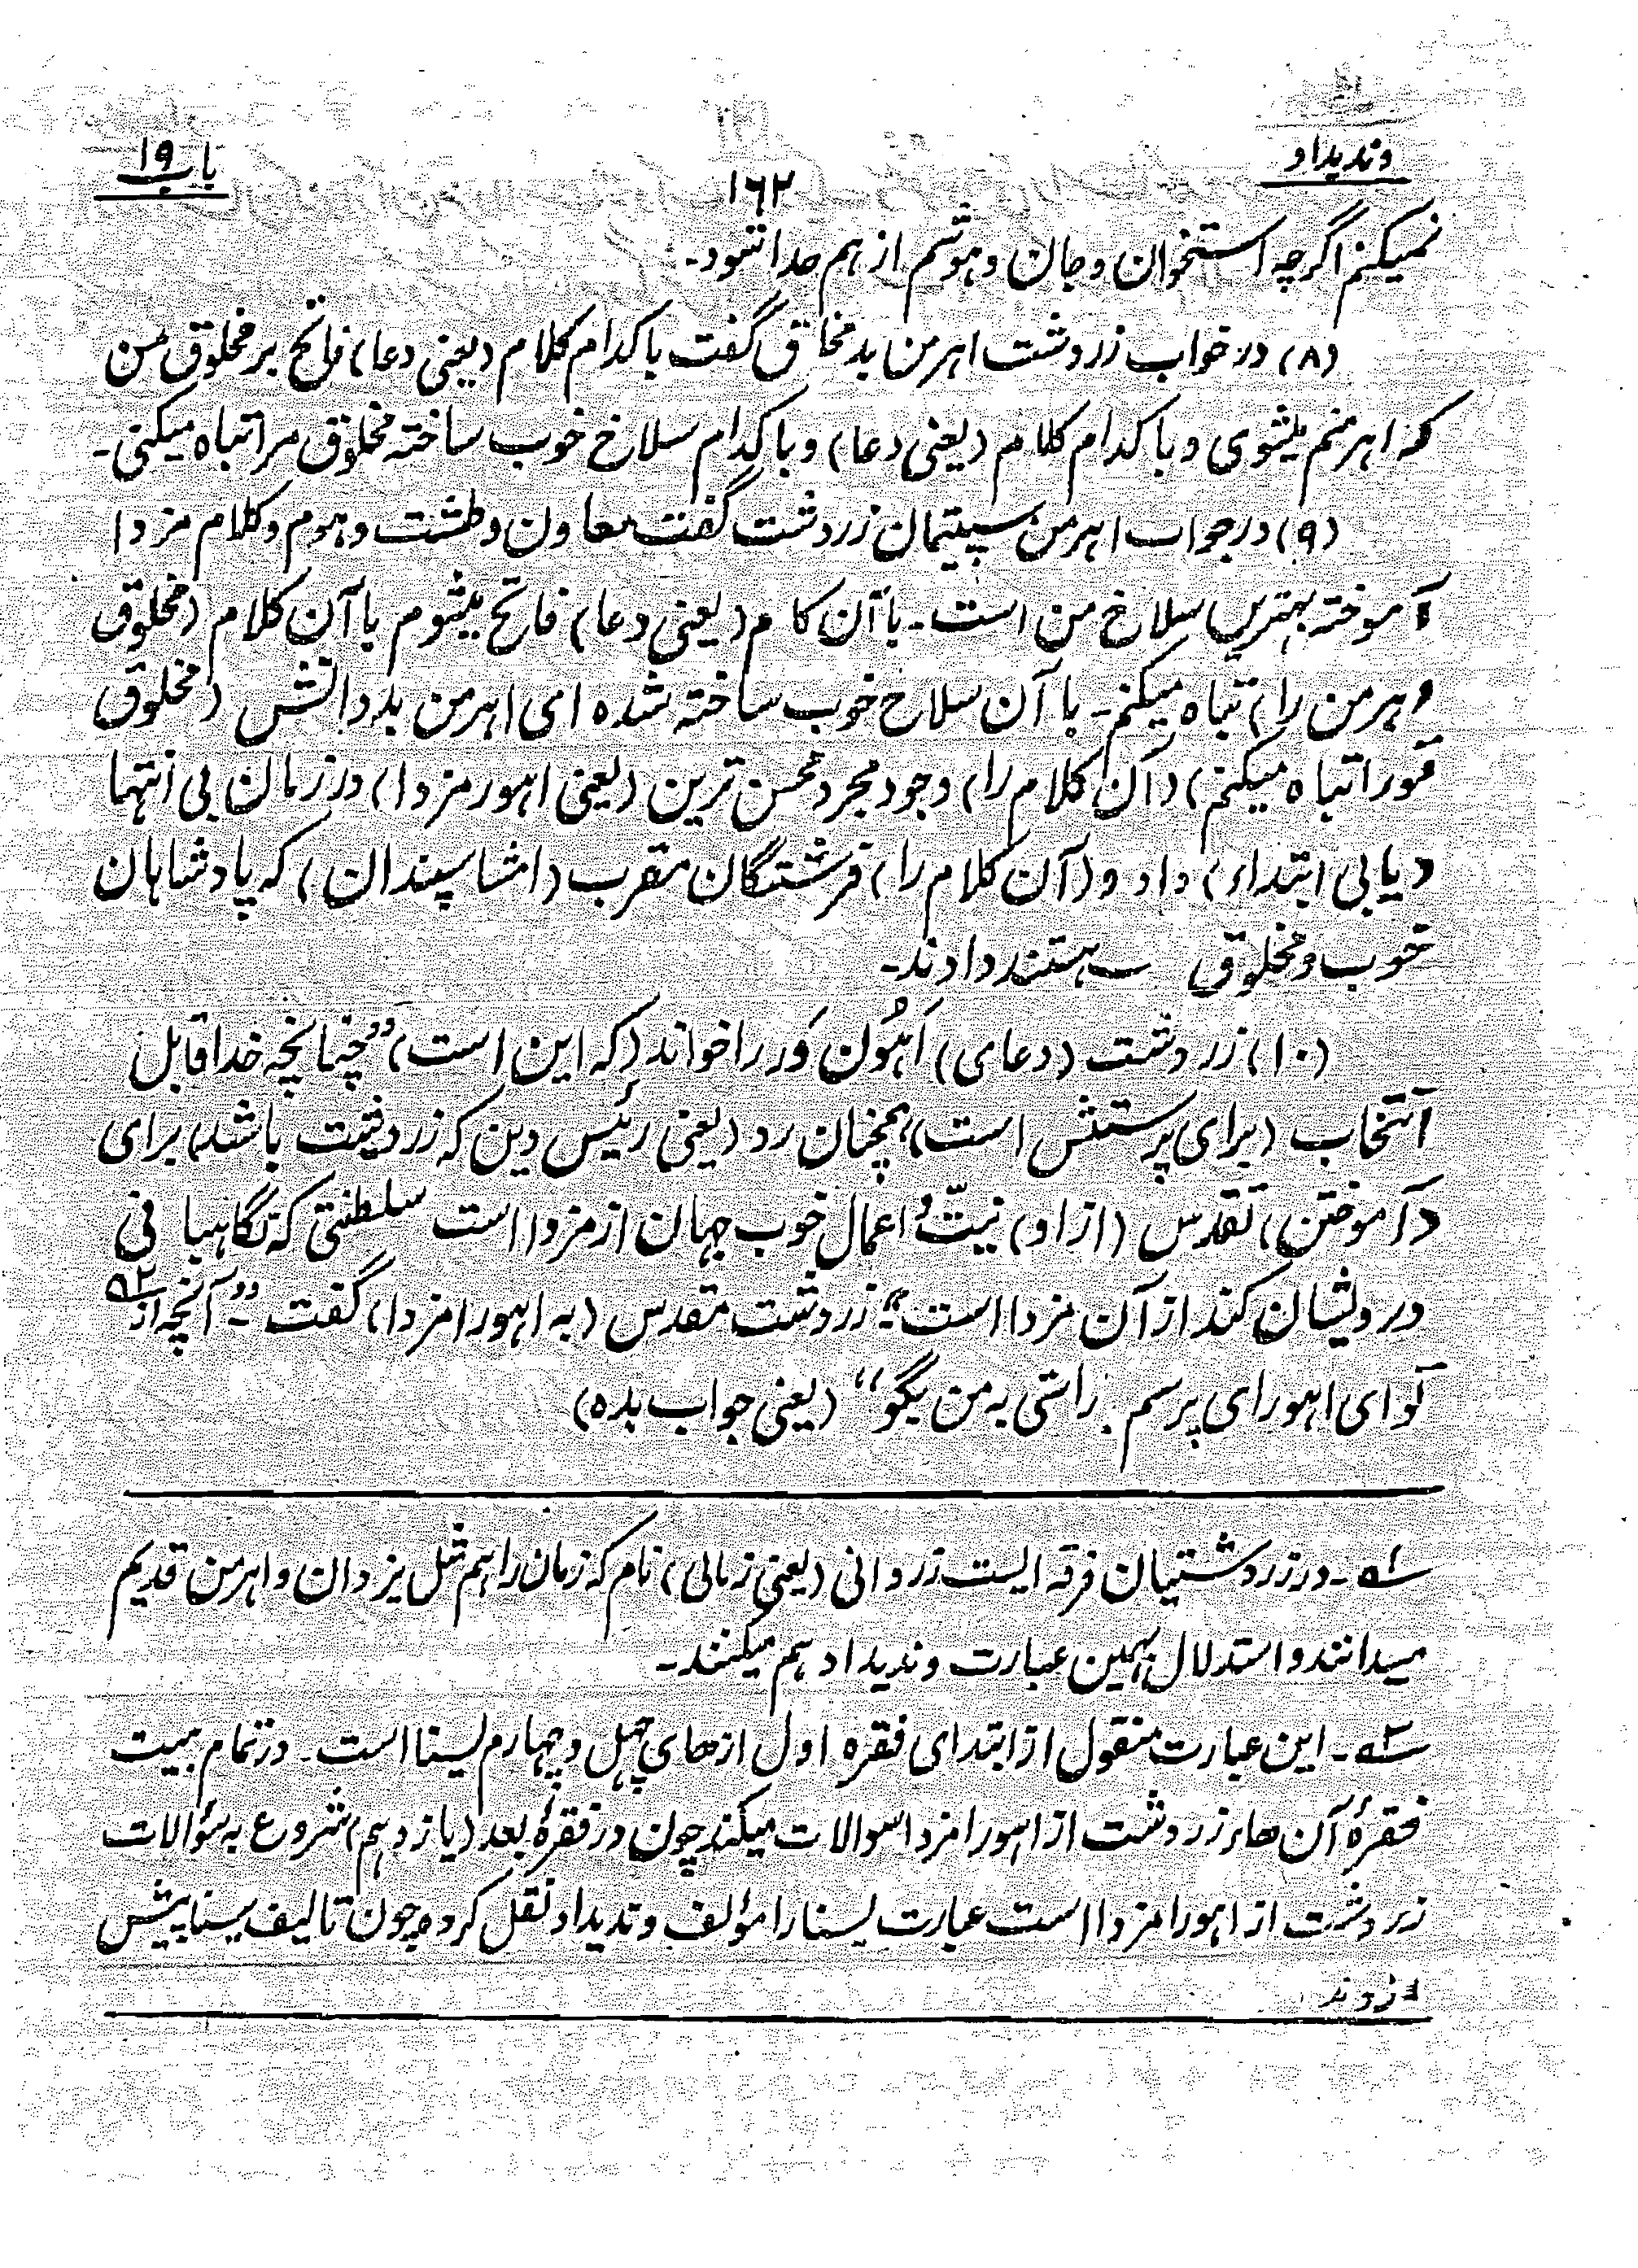 وندیداد
۱۶۲
باب ۱۹
نمیکنم اگرچه استخوان و جان و هوشم از هم جدا شود۔
(۸) در خواب زردشت اهرمن بد مخلق گفت با کدام کلام (یعنی دعا) فاتح بر مخلوق من
که اهرمنم میشوی و با کدام کلام (یعنی دعا) و با کدام سلاح خوب ساخته مخلوق مرا تباه میکنی۔
(۹) در جواب اهرمن سپیتمان زردشت گفت معاون و طشت و هوم و کلام مزدا
آموخته بهترین سلاح من است۔ با آن کلام (یعنی دعا) فاتح میشوم با آن کلام (مخلوق
اهرمن را) تباه میکنم۔ با آن سلاح خوب ساخته شده ای اهرمن بد دانش (مخلوق
تورا تباه میکنم) (آن کلام را) وجود مجرد محسن ترین (یعنی اهورمزدا) در زمان بی انتها
(یا بی ابتداء) داد و (آن کلام را) فرشتگان مقرب (امشاسپندان) که پادشاهان
خوب و مخلوق هستند دادند۔
(۱۰) زردشت (دعای) اَهُون وَر را خواند (که این است) ”چنانچه خدا قابل
انتخاب (برای پرستش است) همچنان رد (یعنی رئیس دین که زردشت باشد) برای
(آموختن) تقدس (از او) نیتّ و اعمال خوب جهان از مزدا است سلطنتی که نگاهبانی
درویشان کند از آن مزدا است“ زردشت مقدس (به اهورا مزدا) گفت ”۔ آنچه از ۲ه
تو ای اهورا می پرسم راستی به من بگو“ (یعنی جواب بده)
۱ه ۔ در زردشتیان فرقه ایست زروانی (یعنی زمانی) نام که زمان را هم مثل یزدان و اهرمن قدیم
میدانند و استدلال بهمین عبارت وندیداد هم میکنند۔
۲ه ۔ این عبارت منقول از ابتدای فقره اول از های چهل و چهارم یسنا است۔ در تمام بیست
فقرهٔ آن هاء زردشت از اهورا مزدا سوالات میکند چون در فقرهٔ بعد (یازدهم) شروع به سؤالات
زردشت از اهورا مزدا است عبارت یسنا را مؤلف وندیداد نقل کرده چون تالیف یسنا پیش
از وند